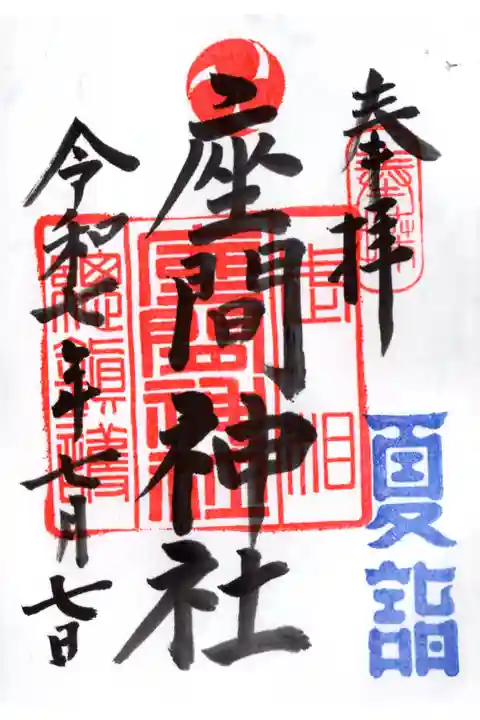 奉拝
夏詣
座間神社
令和七年七月七日